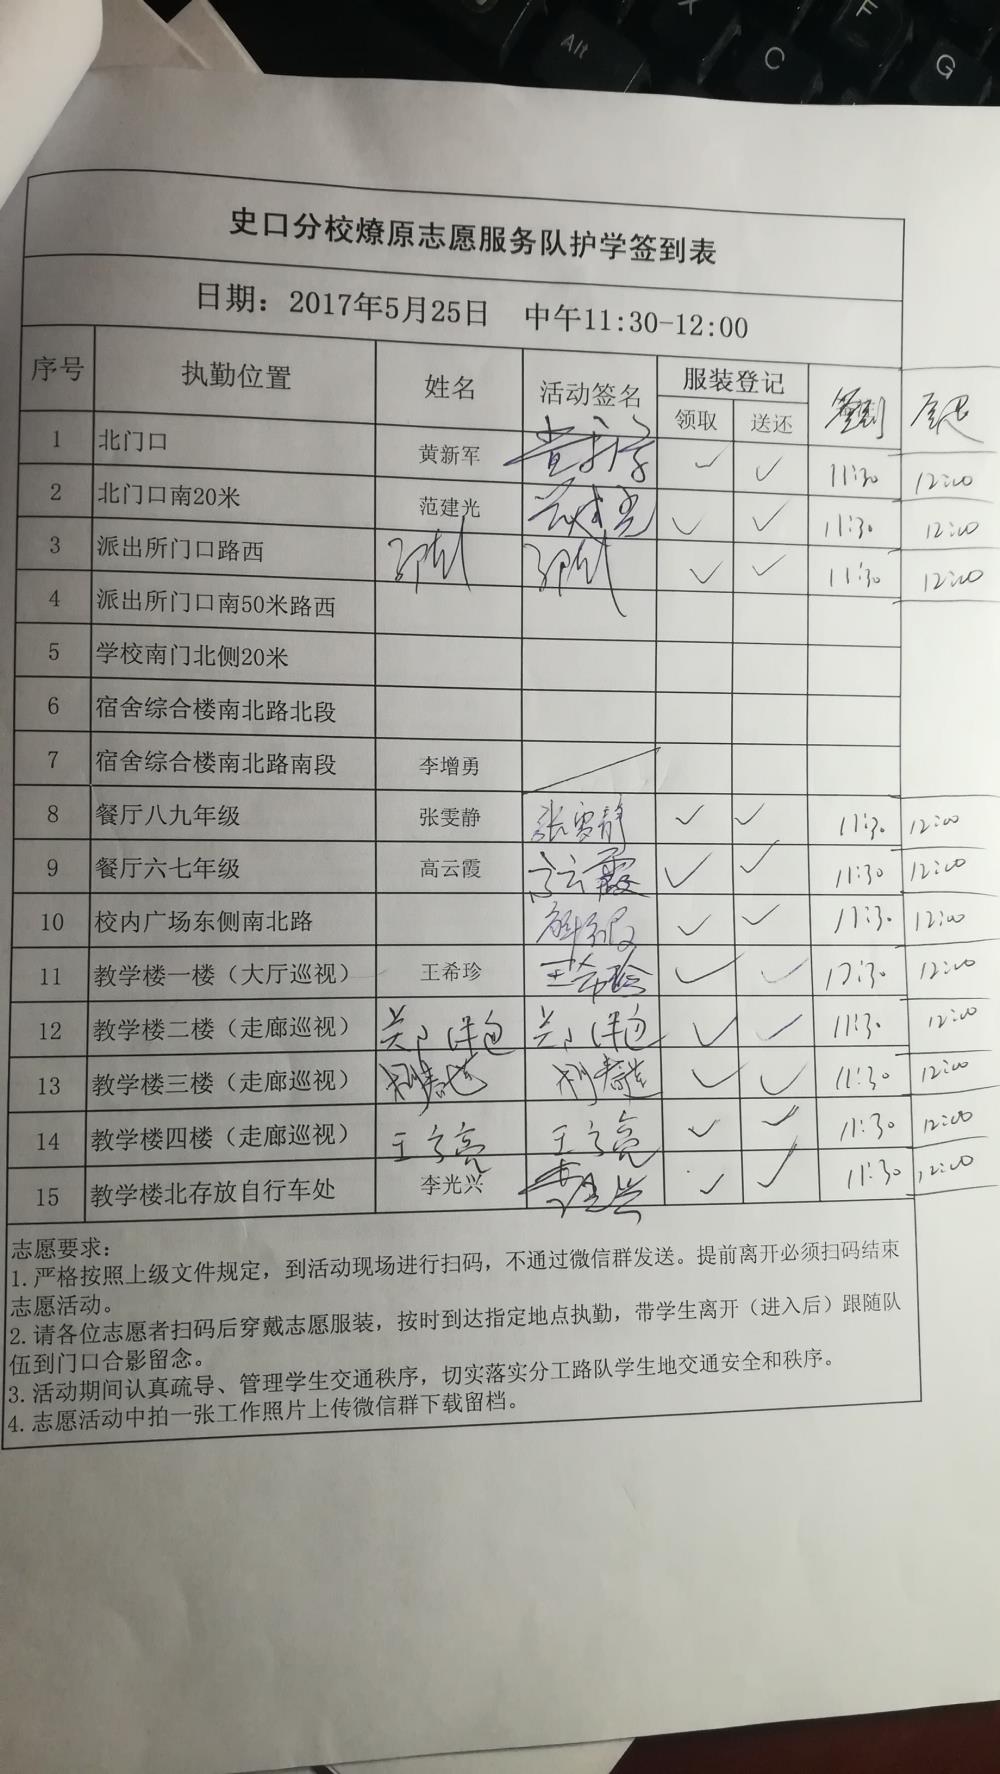 Alt
X
C
F
G
史口分校燎原志愿服务队护学签到表
日期：2017年5月25日 中午11:30-12:00
序号 执勤位置 姓名 活动签名 服装登记 签到
领取 送还
1 北门口 黄新军 黄新军 ✓ ✓ 11:30 12:00
2 北门口南20米 范建光 范建光 ✓ ✓ 11:30 12:00
3 派出所门口路西 ✓ ✓ 11:30 12:00
4 派出所门口南50米路西
5 学校南门北侧20米
6 宿舍综合楼南北路北段
7 宿舍综合楼南北路南段 李增勇
8 餐厅八九年级 张雯静 张雯静 ✓ ✓ 11:30 12:00
9 餐厅六七年级 高云霞 高云霞 ✓ ✓ 11:30 12:00
10 校内广场东侧南北路 ✓ ✓ 11:30 12:00
11 教学楼一楼（大厅巡视） 王希珍 王希珍 ✓ ✓ 12:00
12 教学楼二楼（走廊巡视） ✓ ✓ 11:30 12:00
13 教学楼三楼（走廊巡视） ✓ ✓ 11:30 12:00
14 教学楼四楼（走廊巡视） ✓ ✓ 11:30 12:00
15 教学楼北存放自行车处 李光兴 李光兴 ✓ ✓ 11:30 12:00
志愿要求：
1.严格按照上级文件规定，到活动现场进行扫码，不通过微信群发送。提前离开必须扫码结束
志愿活动。
2.请各位志愿者扫码后穿戴志愿服装，按时到达指定地点执勤，带学生离开（进入后）跟随队
伍到门口合影留念。
3.活动期间认真疏导、管理学生交通秩序，切实落实分工路队学生地交通安全和秩序。
4.志愿活动中拍一张工作照片上传微信群下载留档。